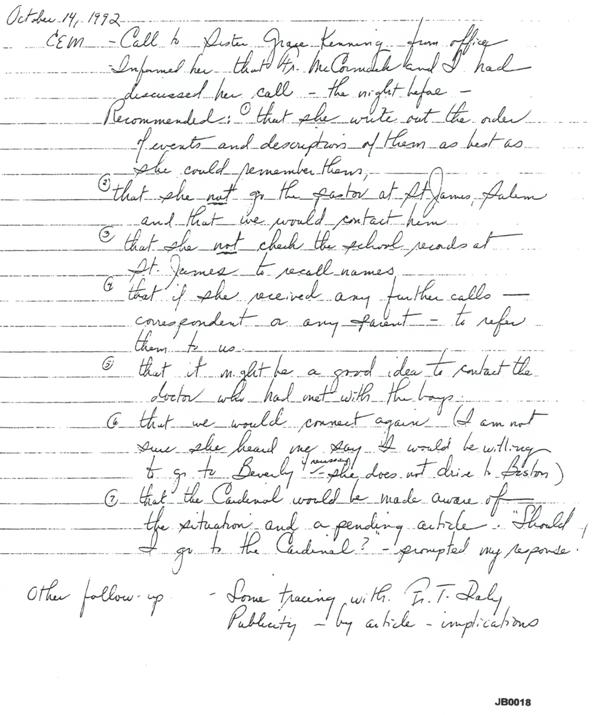 October 14, 1992
CEM - Call to Sister Grace Kenning from office
- Informed her that Fr. McCormack and I had
discussed her call - the night before -
Recommended: ① that she write out the order
of events and description of them as best as
she could remember them,
② that she not go the pastor at St James, Salem
and that we would contact him
③ that she not check the school records at
St. James to recall names
④ that if she received any further calls —
correspondent or any parent - to refer
them to us.
⑤ that it might be a good idea to contact the
doctor who had met with the boys.
⑥ that we would connect again (I am not
sure she heard me say I would be willing
to go to Beverly if necessary - she does not drive to Boston)
⑦ that the Cardinal would be made aware of
the situation and a pending article. "Should
I go to the Cardinal?" - prompted my response.
Other follow-up - Some tracing with Fr. T. Daly
Publicity - by article - implications
JB0018